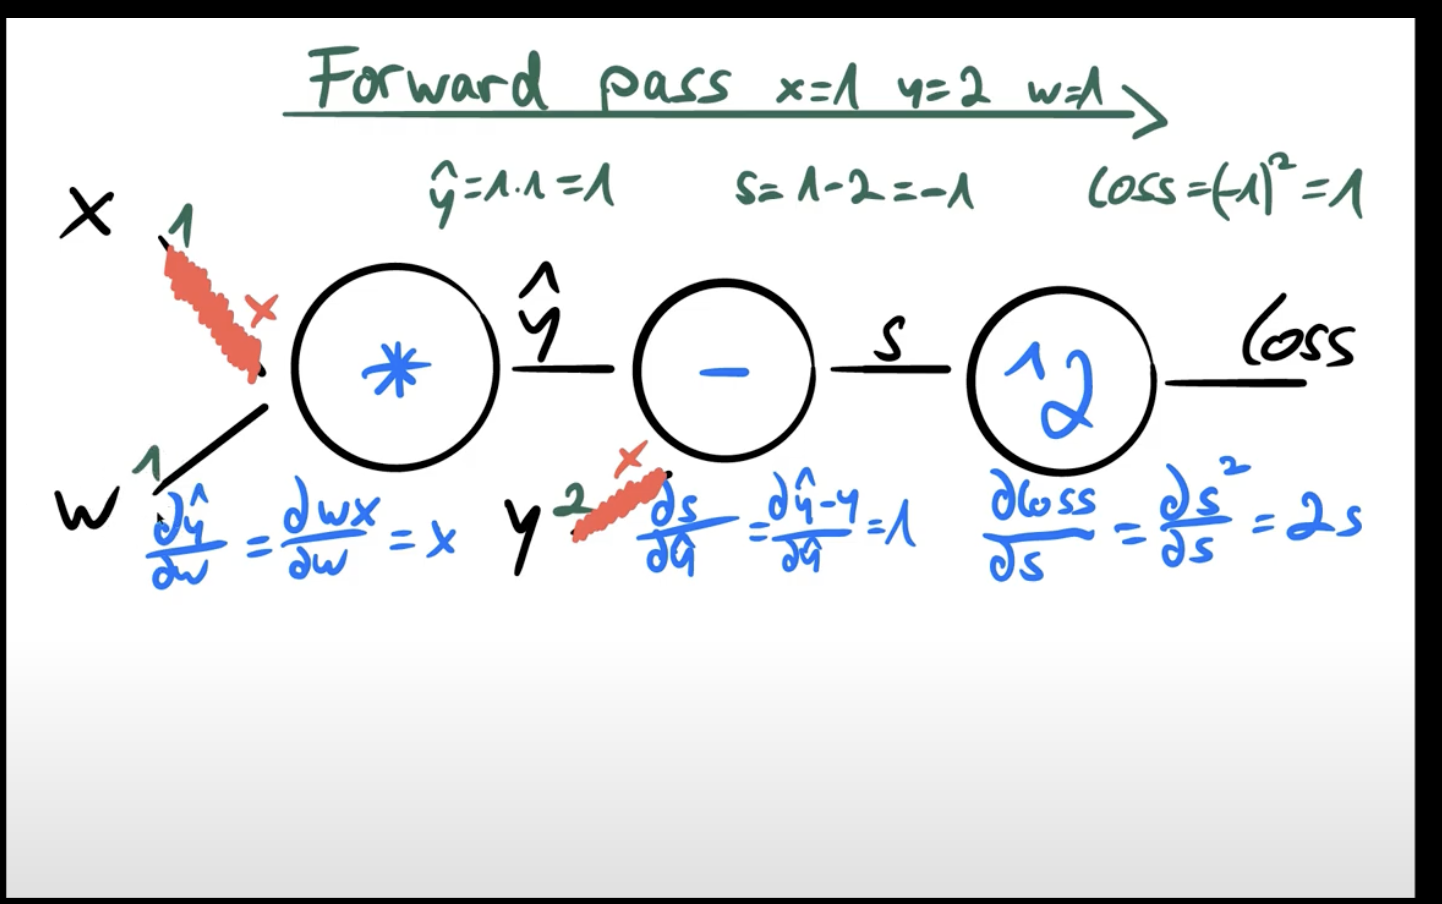 Forward pass x=1 y=2 w=1
ŷ=1·1=1 s=1-2=-1 loss=(-1)²=1
x 1 x
* ŷ - s ^2 loss
w 1 y 2 x
∂ŷ/∂w = ∂wx/∂w = x ∂s/∂ŷ = ∂ŷ-y/∂ŷ = 1 ∂loss/∂s = ∂s²/∂s = 2s